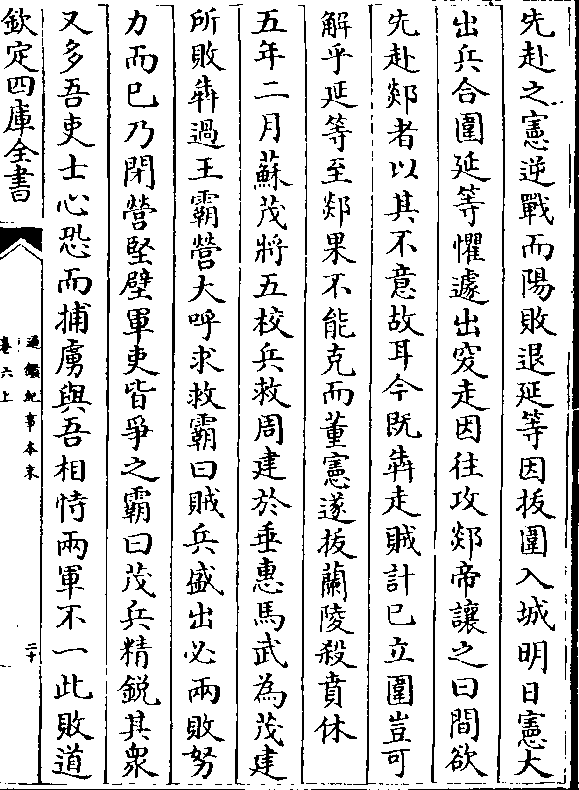 先赴之憲逆戰而陽敗退延等因拔圍入城明日憲大
出兵合圍延等懼遽出突走因往攻郯帝讓之曰間欲
先赴郯者以其不意故耳今既犇走賊計已立圍豈可
解乎延等至郯果不能克而董憲遂拔蘭陵殺賁休
五年二月蘇茂將五校兵救周建於垂惠馬武為茂建
所敗犇過王霸營大呼求救霸曰賊兵盛出必兩敗努
力而已乃閉營堅壁軍吏皆爭之霸曰茂兵精銳其衆
又多吾吏士心恐而捕虜與吾相恃兩軍不一此敗道
欽定四庫全書
通鑑紀事本末
卷六上
二十